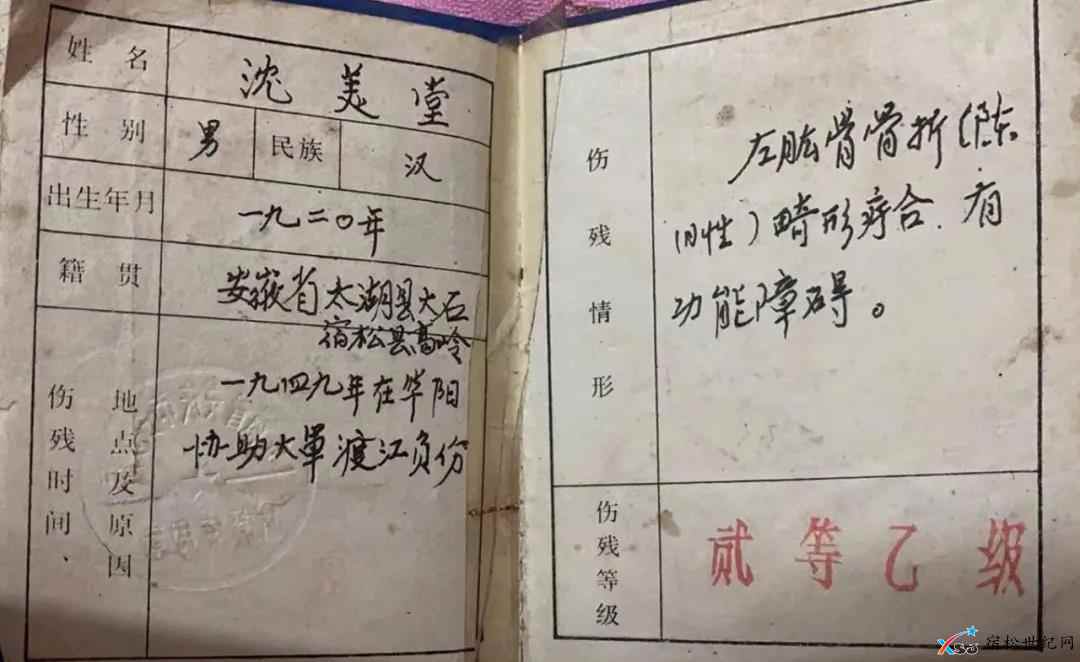 姓名 沈美堂
性别 男 民族 汉
出生年月 一九二〇年
籍贯 安徽省太湖县大石
宿松县高岭
伤残时间、地点及原因
一九四九年在华阳
协助大军渡江负份
伤残情形
左肱骨骨折(陈
旧性)畸形疗合.有
功能障碍。
伤残等级
贰等乙级
宿松世纪网